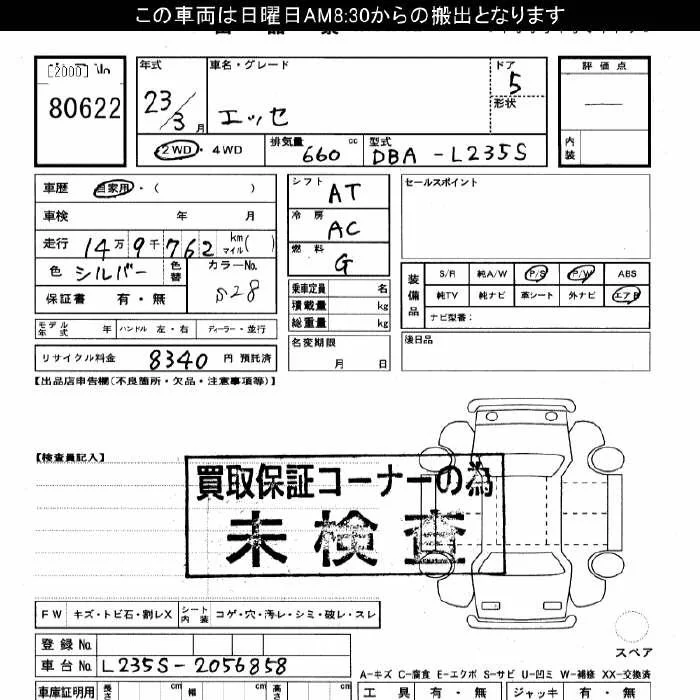 この車両は日曜日AM8:30からの搬出となります
[2000]
80622
年式
23/3月
車名・グレード
エッセ
ドア
5
形状
評価点
内装
2WD・4WD
排気量
660 cc
型式
DBA-L235S
車歴 自家用・( )
車検 年 月
走行 14万9千762 km マイル( )
色 シルバー 色替
カラーNo.
S28
保証書 有・無
シフト
AT
冷房
AC
燃料
G
乗車定員 名
積載量 kg
総重量 kg
セールスポイント
装備品
S/R 純A/W P/S P/W ABS
純TV 純ナビ 革シート 外ナビ エアB
ナビ型番:
モデル年式 年 ハンドル 左・右 ディーラー・並行
名変期限
月 日
後日品
リサイクル料金 8340 円 預託済
【出品店申告欄(不良箇所・欠品・注意事項等)】
【検査員記入】
買取保証コーナーの為
未検査
FW キズ・トビ石・割レX シート内装 コゲ・穴・汚レ・シミ・破レ・スレ
スペア
登録No.
車台No. L235S-2056858
A-キズ C-腐食 E-エクボ S-サビ U-凹ミ W-補修 XX-交換済
車庫証明用 長さ cm 幅 cm 高さ cm
工具 有・無 ジャッキ 有・無